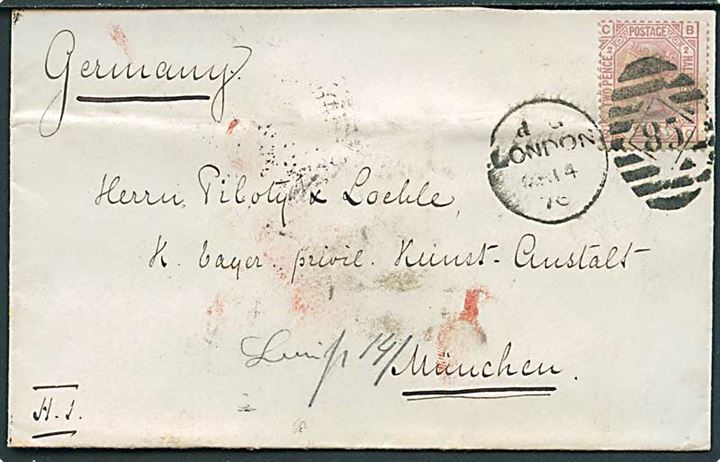 Germany.
C POSTAGE B
TWO PENCE
HALF
85
LONDON
14
76
Herrn Piloty & Loehle,
K. bayer. privil. Kunst-Anstalt
14/ München.
H. S.